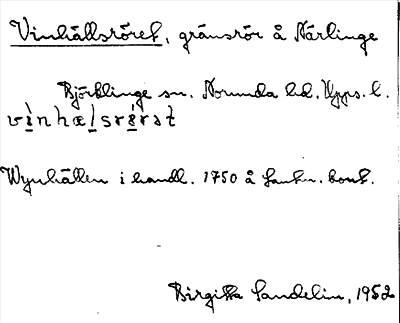 Vinhällsröret, gränsrör å Närlinge
Björklinge sn. Norunda hd. Upps. l.
vìnhælsrérət
Wynhällen i handl. 1750 å Lantm. kont.
Birgitta Sandelin, 1952